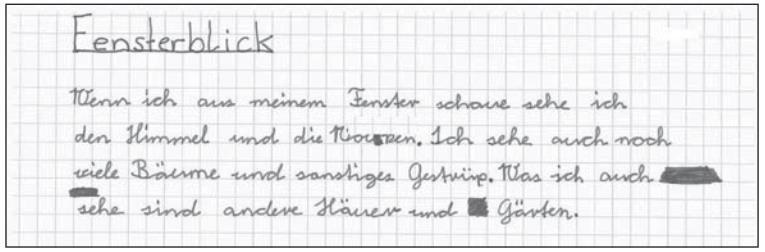 Fensterblick
Wenn ich aus meinem Fenster schaue sehe ich
den Himmel und die. Ich sehe auch noch
viele Bäume und sonstiges Gestrüp. Was ich auch
sehe sind andere Häuser und Gärten.